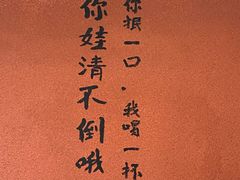 你抿一口，我喝一杯
你娃清不倒哦